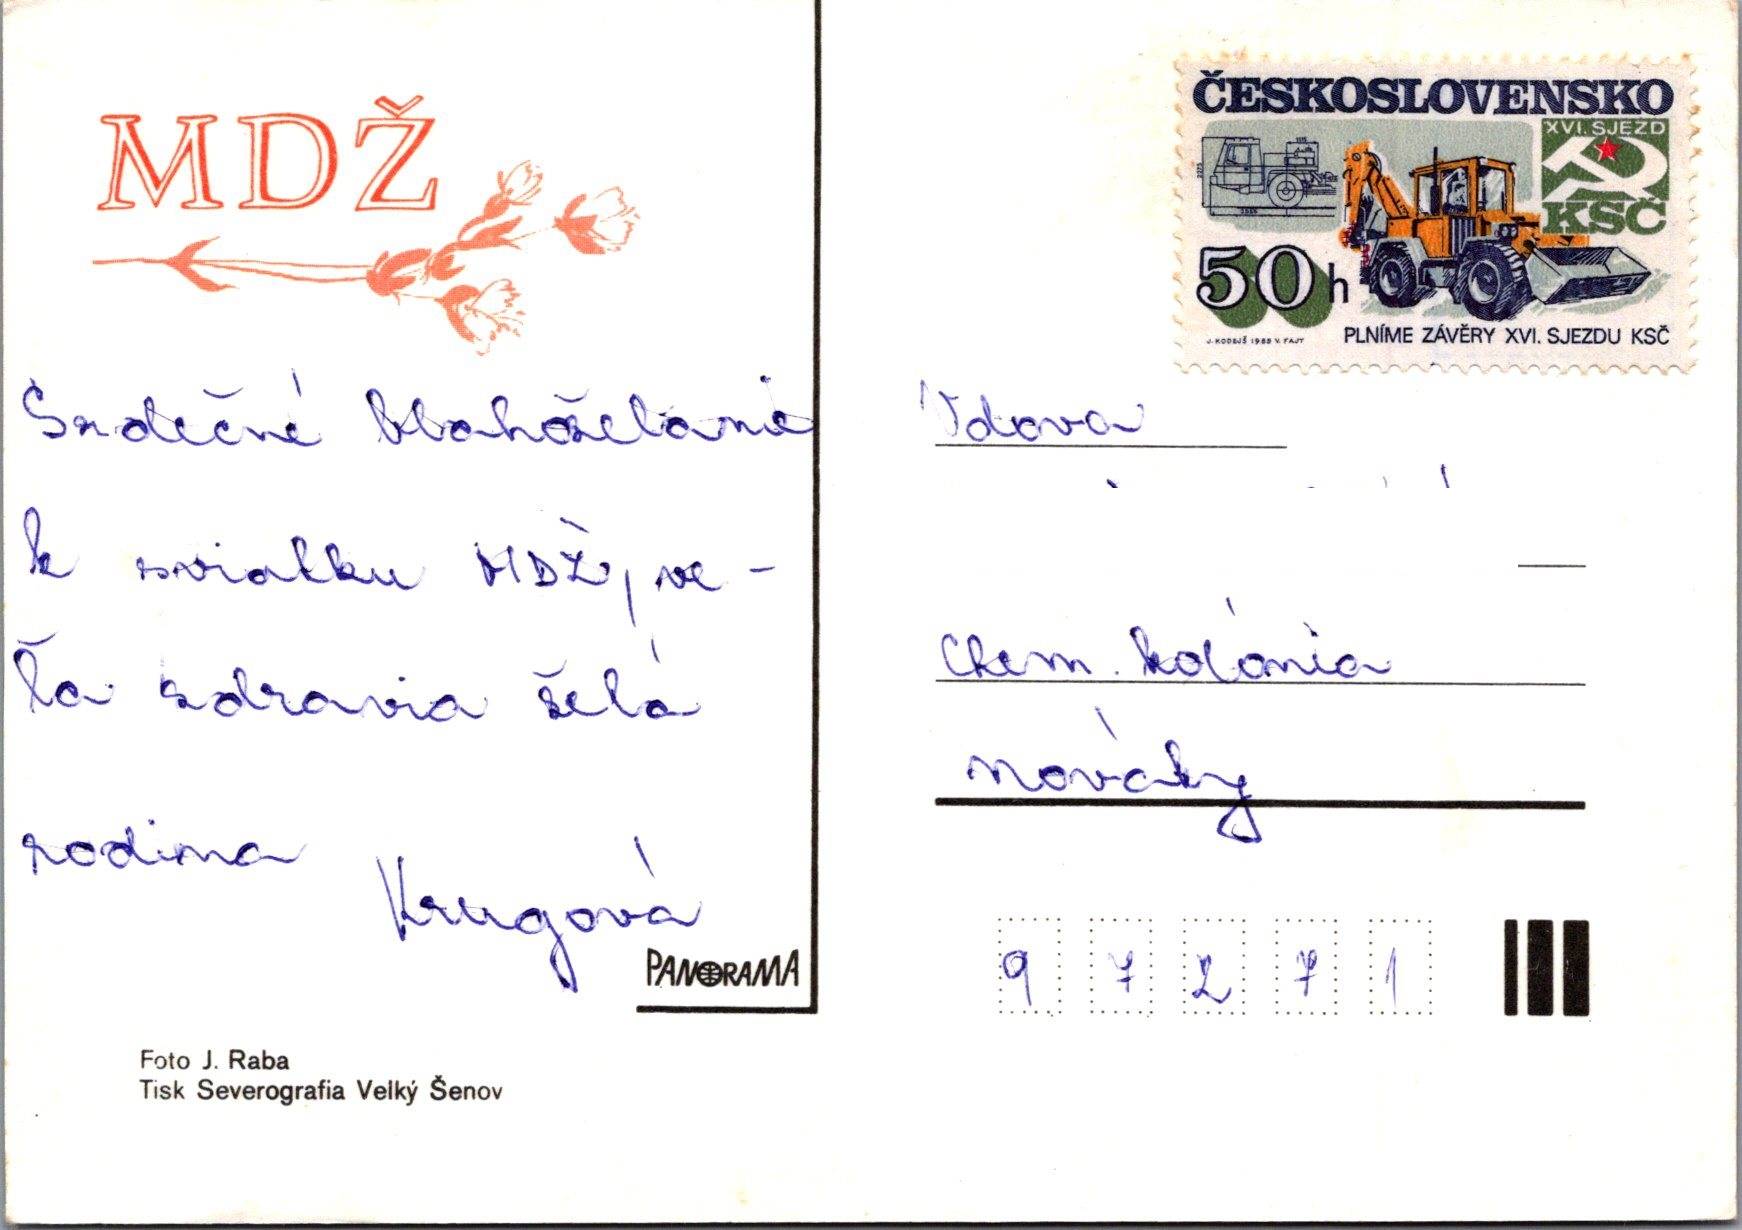 MDŽ
Srdečné blahoželanie
k sviatku MDŽ, ve-
ľa zdravia želá
rodina
Krugová
PANORAMA
Foto J. Raba
Tisk Severografia Velký Šenov
ČESKOSLOVENSKO
XVI. SJEZD
KSČ
50h
J. KODEJŠ 1985 V. FAJT
PLNÍME ZÁVĚRY XVI. SJEZDU KSČ
Vdova
Chem. kolónia
Nováky
97271